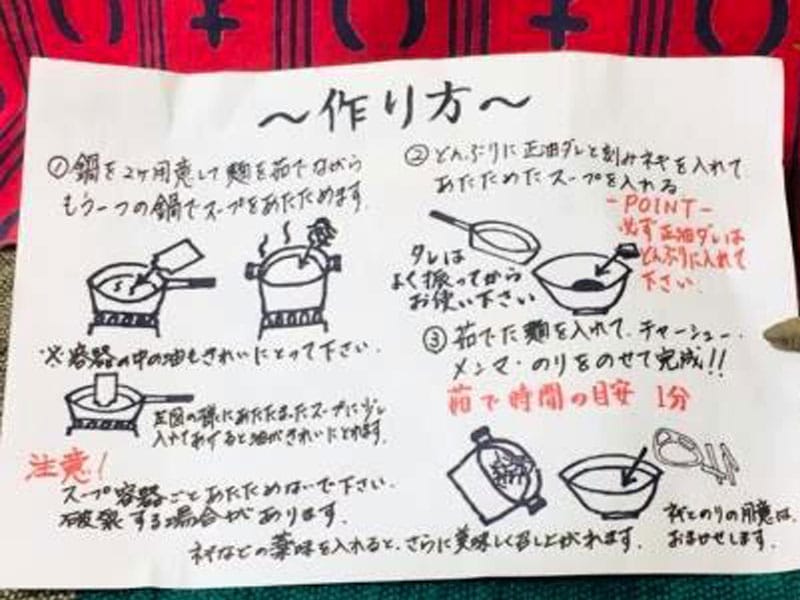 〜作り方〜
①鍋を2ヶ用意して麺を茹でながら
もう一つの鍋でスープをあたためます。
※容器の中の油もきれいにとって下さい。
左図の様にあたたまったスープに少し
入れてあげると油がきれいにとれます。
注意!
スープ容器ごとあたためないで下さい。
破裂する場合があります。
②どんぶりに正油ダレと刻みネギを入れて
あたためたスープを入れる
-POINT-
必ず正油ダレは
どんぶりに入れて
下さい。
タレは
よく振ってから
お使い下さい
③茹でた麺を入れて、チャーシュー・
メンマ・のりをのせて完成!!
茹で時間の目安 1分
ネギとのりの用意は、
おまかせします。
ネギなどの薬味を入れると、さらに美味しく召し上がれます。